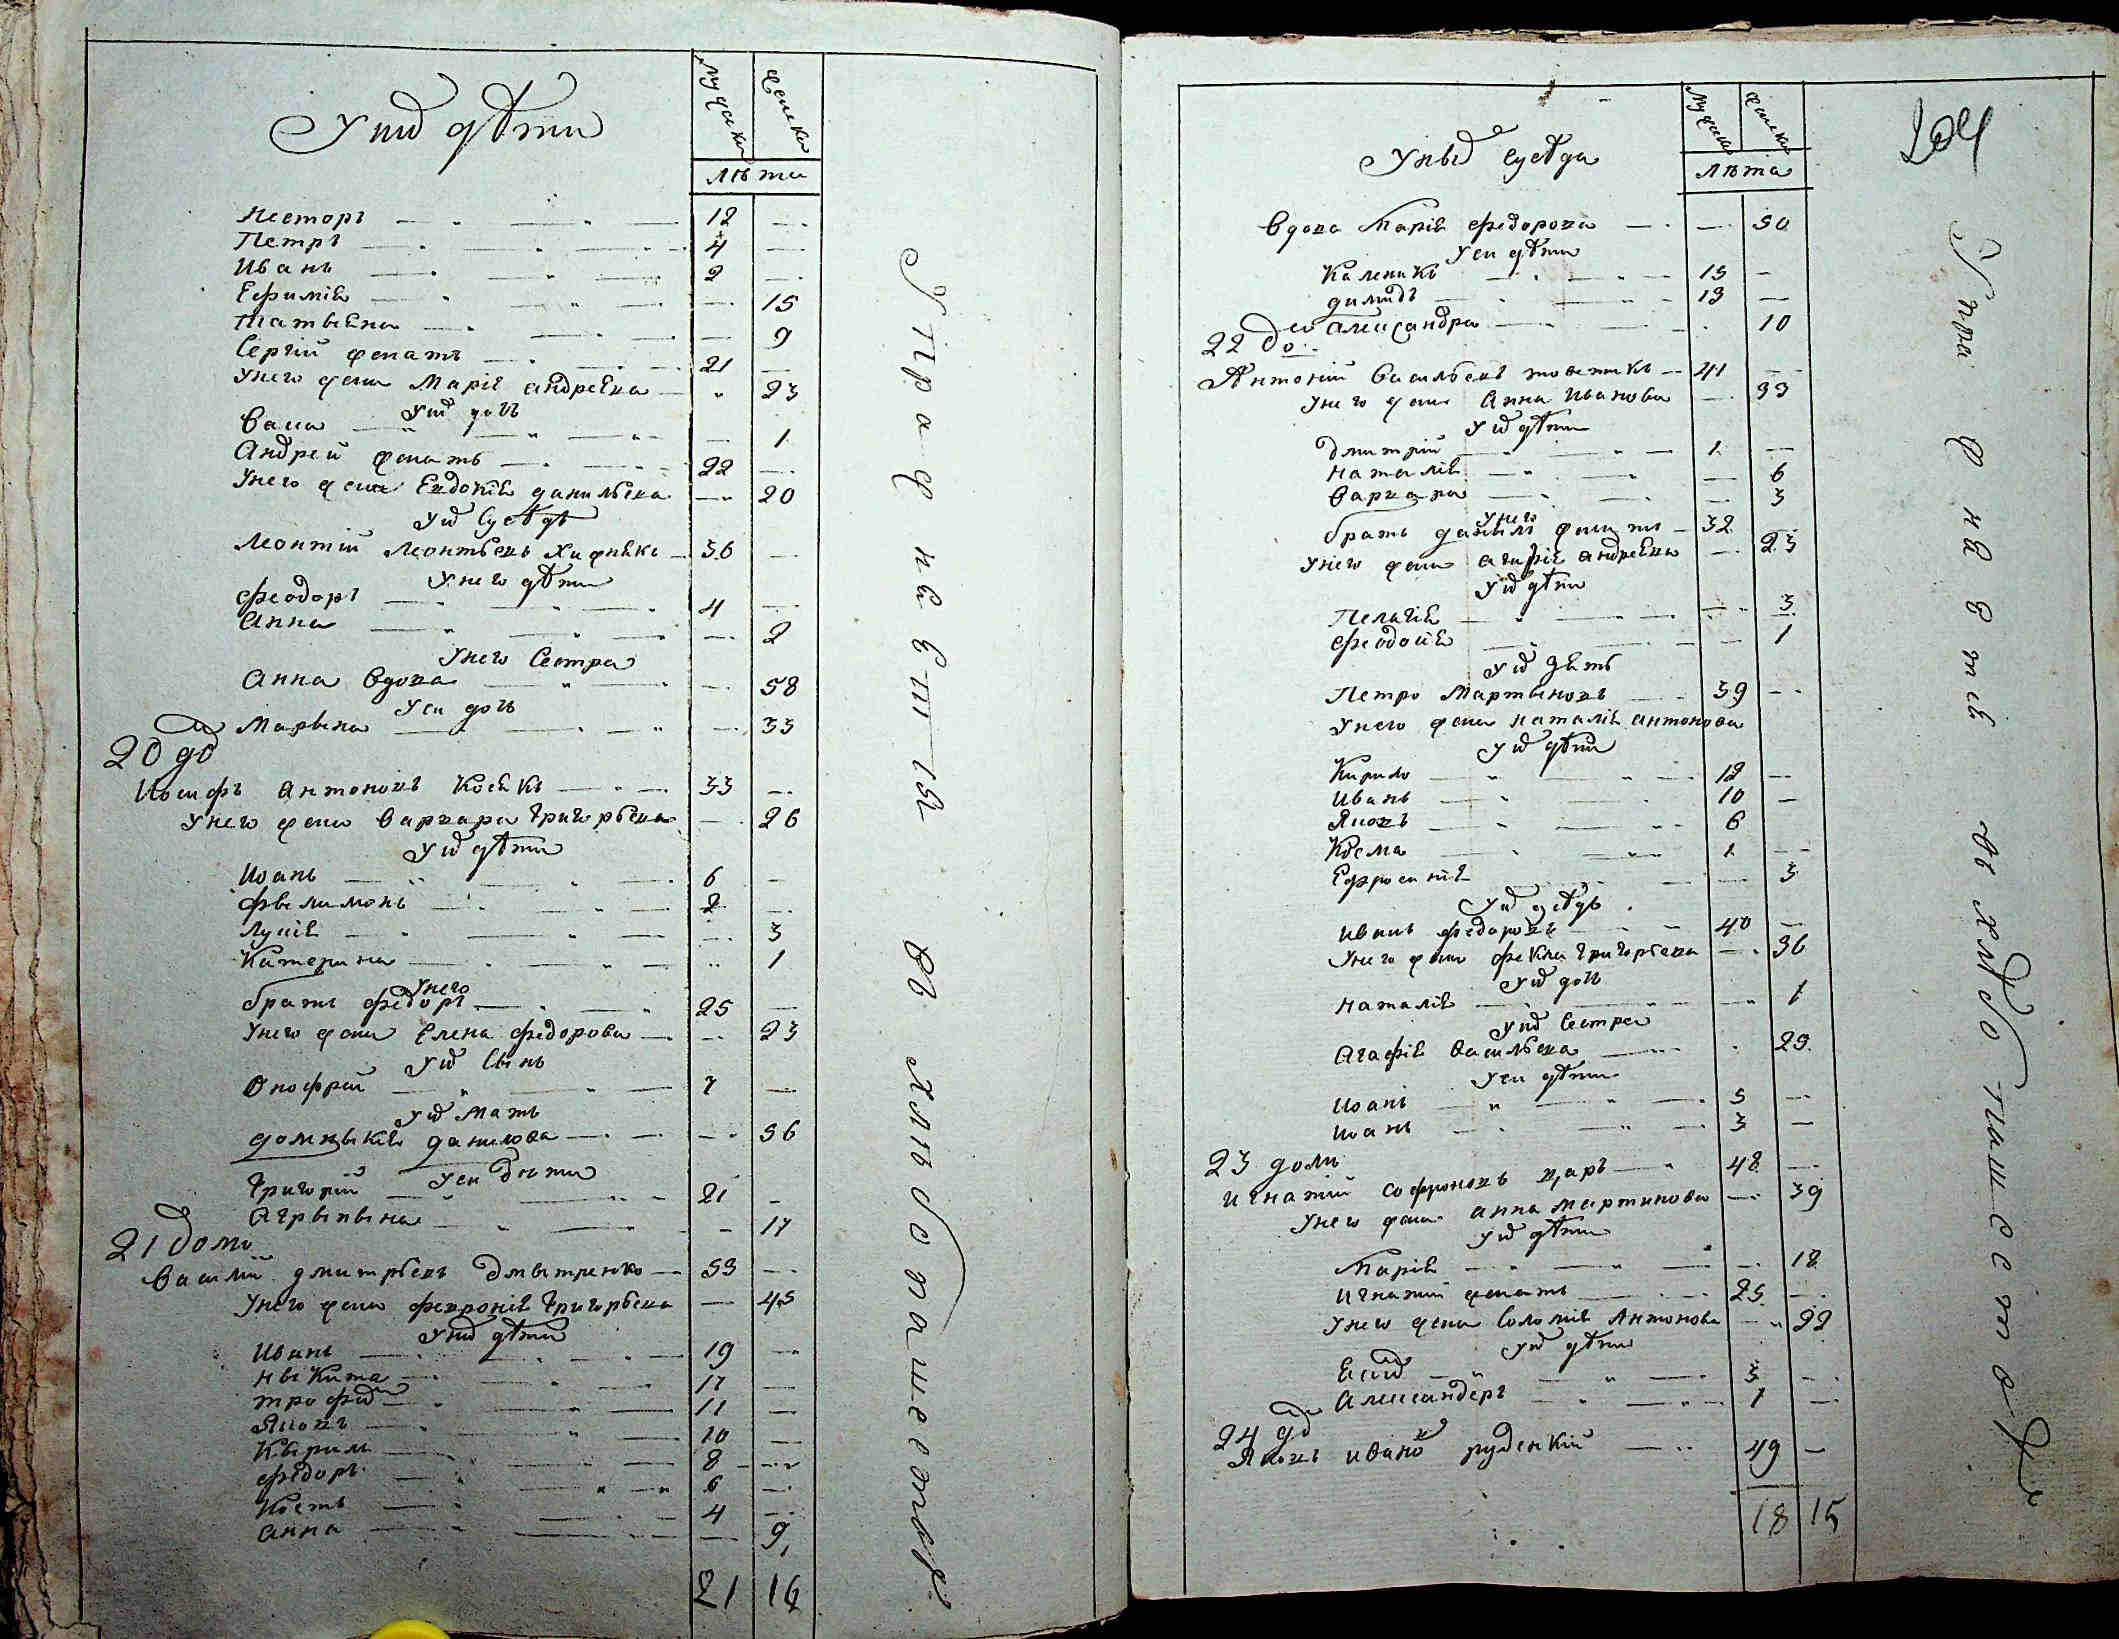 У них дѣти
мужеска женска
лѣта
Несторъ 12
Петръ 4
Иванъ 2
Ефимiя 15
Татьяна 9
Сергiй женатъ 21
У него жена Марiя Андреева 23
У них дочь
Васса 1
Андрей женатъ 22
У него жена Евдокiя Данильева 20
У них сусѣдъ
Леонтiй Леонтьевъ 36
У него дѣти
Феодоръ 4
Анна 2
У него сестра
Анна вдова 58
У ей дочь
Марына 33
20 до
Иосифъ Антоновъ 33
У него жена Варвара Григорьева 26
У них дѣти
Иоанъ 6
Фылимонъ 2
Лукiя 3
Катерина 1
У него
братъ Федоръ 25
У него жена Елена Федорова 23
У них сынъ
Онофрiй 7
У них мать
Домныкiя Данилова 56
У ей дѣти
Григорiй 21
Агрыпына 17
21 домъ
Василiй Дмитрьевъ Дмытренко 53
У него жена Февронiя Григорьева 45
У них дѣти
Иванъ 19
Ныкита 17
Трофим 11
Яковъ 10
Кырилъ 8
Федоръ 6
Кость 4
Анна 9
21 16
У Пражневитія въ хлѣбопашествѣ

204
У ныхъ сусѣда
мужеска женска
лѣта
Вдова Марiя Федорова 50
У ей дѣти
Каленикъ 15
Димидъ 13
Александра 10
22 до
Антонiй Васильевъ 41
У него жена Анна Иванова 33
У них дѣти
Дмитрiй 1
Наталiя 6
Варвара 3
У него
братъ Данiилъ женатъ 32
У него жена Агафiя Андреева 23
У них дѣти
Пелагiя 3
Феодосiя 1
У них зять
Петро Мартыновъ 39
У него жена Наталiя Антонова
У них дѣти
Кирило 12
Иванъ 10
Яковъ 6
Косма 1
Ефросинiя 3
У них сусѣдъ
Иванъ Федоровъ 40
У него жена Фекла Григорьева 36
У них дочь
Наталiя 1
У них сестра
Агафiя Васильева 29
У ей дѣти
Иоанъ 5
Иоанъ 3
23 домъ
Игнатiй Софроновъ 48
У него жена Анна Мартинова 39
У них дѣти
Марiя 18
Игнатiй женатъ 25
У него жена Соломiя Антонова 22
У них дѣти
Александеръ 1
24 до
Яковъ Иванов Руденкiй 49
18 15